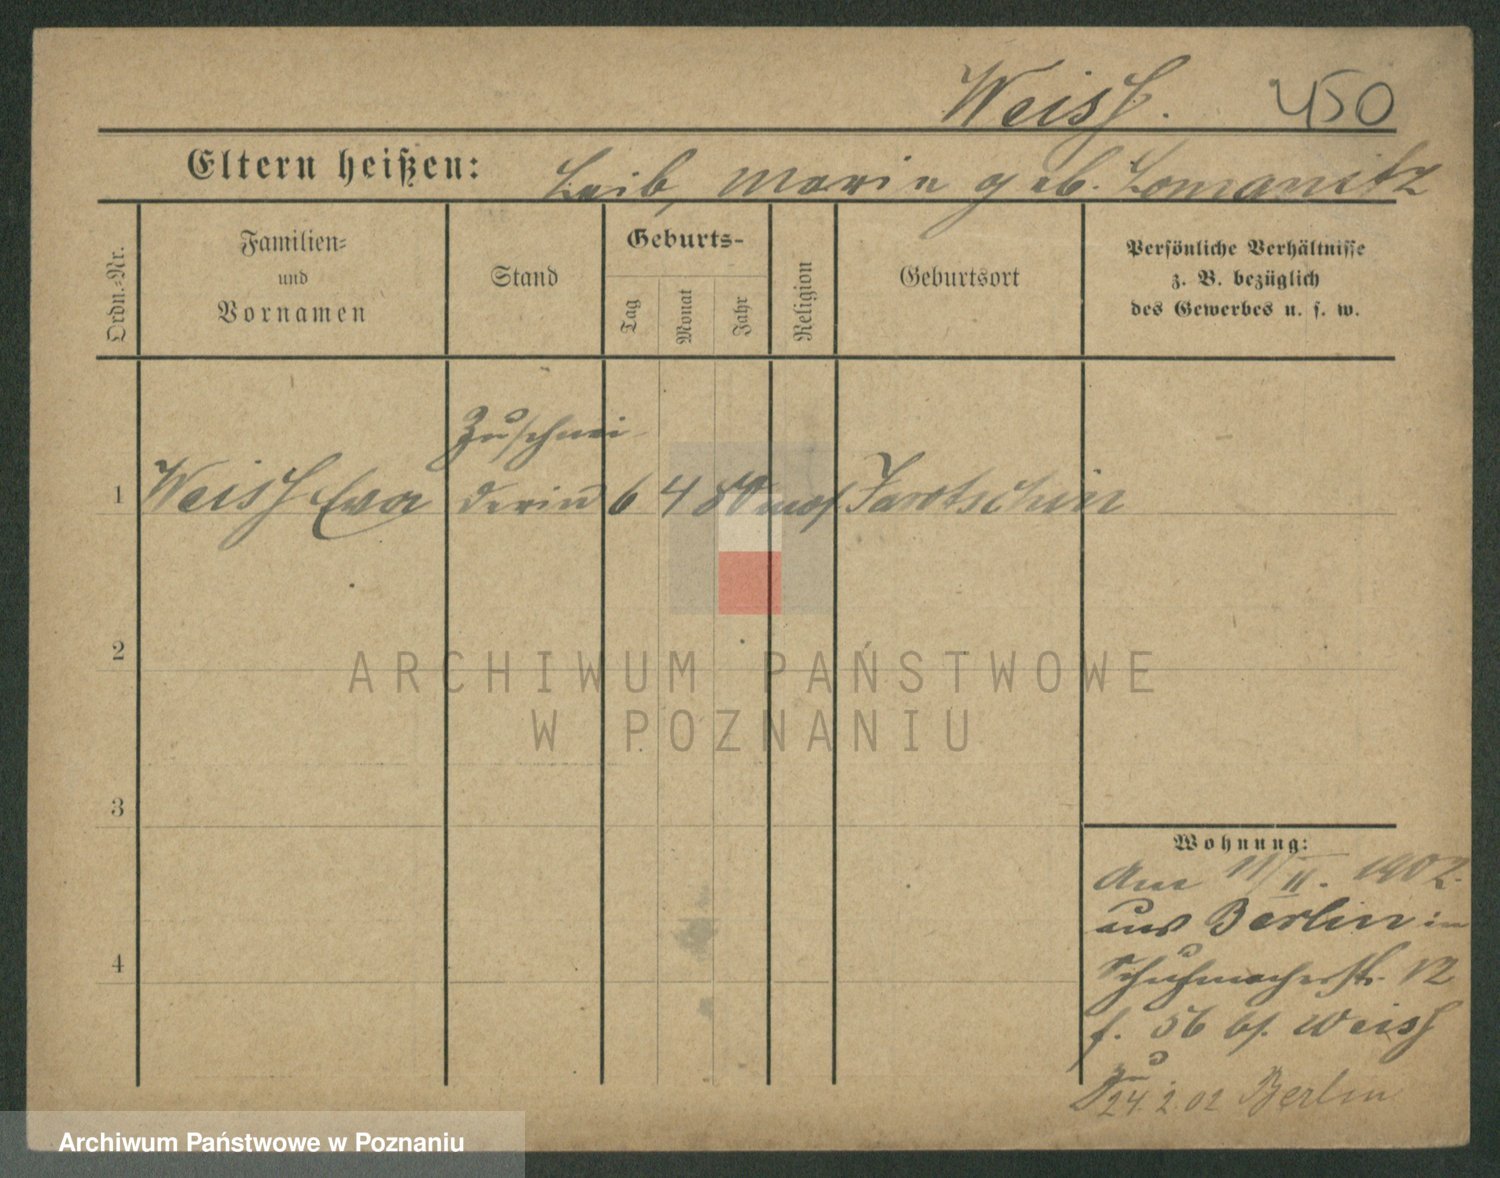 Weiß. 450
Eltern heißen: Leib, Marie geb. Lomanitz
Ordn.-Nr.
Familien-
und
Vornamen
Stand
Geburts-
Tag
Monat
Jahr
Religion
Geburtsort
Persönliche Verhältnisse
z. B. bezüglich
des Gewerbes u. s. w.
Zuschnei-
1 Weiß Eva derin 6 4 80 mos. Jarotschin
2
ARCHIWUM PAŃSTWOWE
W POZNANIU
3
4
Wohnung:
Am 11/II. 1902.
aus Berlin in
Schuhmacherstr. 12
f. 56 bs. Weiß
24.2.02 Berlin
Archiwum Państwowe w Poznaniu